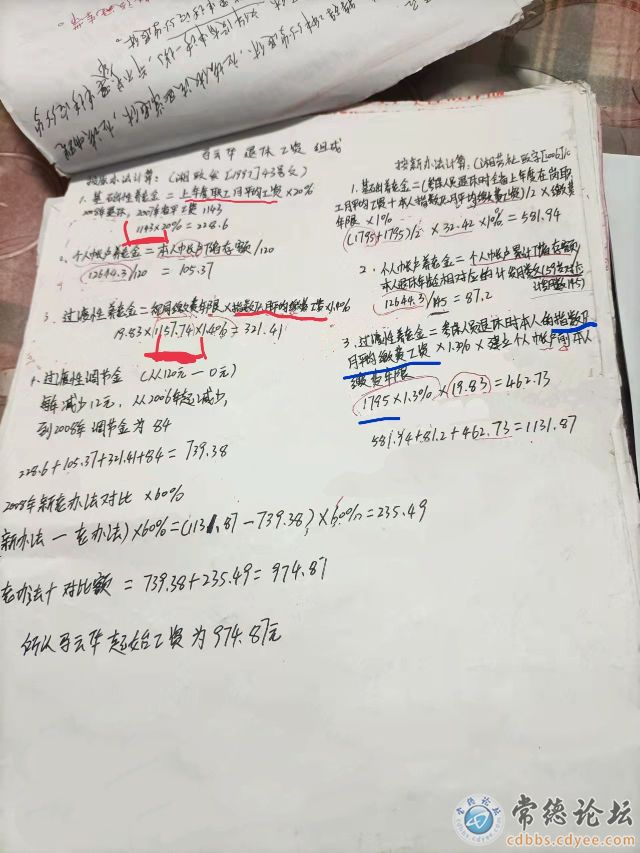 退休工资组成
按老办法计算：(湘政发[1997]43号文)
1. 基础性养老金 = 上年度职工月平均工资 ×20%
2008年退休，2007年 1143
1143×20% = 228.6
2. 个人帐户养老金 = 本人帐户储存额/120
12644.3/120 = 105.37
3. 过渡性养老金 = 缴费年限×指数化月平均缴费工资×1.40%
19.83×1157.74×1.40% = 321.41
4. 过渡性调节金 (从120元—0元)
每年减少12元，从2006年起减少，
到2008年调节金为84
228.6+105.37+321.41+84 = 739.38
2008年新老办法对比 ×60%
新办法—老办法)×60%=(1131.87-739.38)×60%=235.49
老办法+对比额 = 739.38+235.49= 974.87
所以 云华起始工资为974.87元
按新办法计算：(湘劳社政字[2006]
1. 基础养老金 = (参保人员退休时全省上年度在岗职
工月平均工资+本人指数化月平均缴费工资)/2 ×缴费
年限 ×1%
(1795+1795)/2 × 32.42 ×1% = 581.94
2. 个人帐户养老金 = 个人帐户累计储存额/
本人退休年龄相对应的计发月数
12644.3/145 = 87.2
3. 过渡性养老金 = 参保人员退休时本人的指数化
月平均缴费工资 ×1.3% × 建立个人帐户前本人
缴费年限
1795×1.3%×(19.83) = 462.73
581.94+87.2+462.73 = 1131.87
常德论坛
cdbbs.cdyee.com